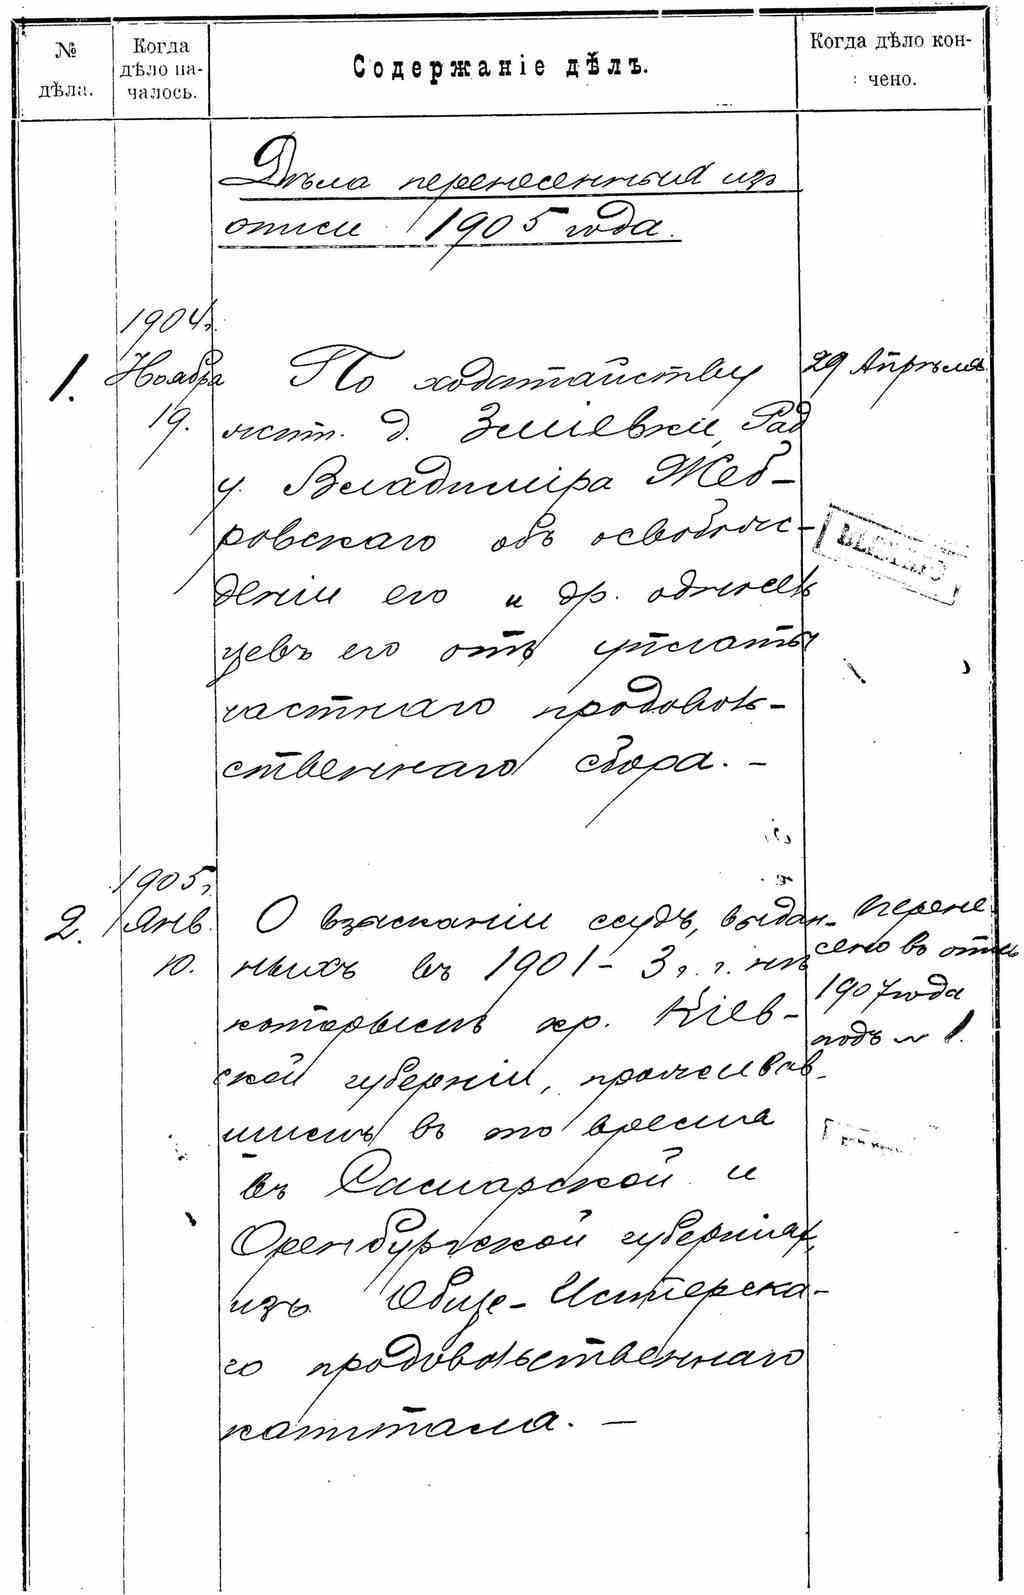 № дѣла.
Когда дѣло на-
чалось.
Содержаніе дѣлъ.
Когда дѣло кон-
чено.
Дѣла перенесенныя изъ
описи 1905 года.
1.
1904 г.
Ноября
19.
По ходатайству
жит. д. Зміевки, Рад
у. Владиміра Жеб-
ровскаго объ освобож-
деніи его и др. односель
цевъ его отъ уплаты
частнаго продоволь-
ственнаго сбора. –
29 Апрѣля
2.
1905 г.
Янв.
10.
О взысканіи ссудъ, выдан-
ныхъ въ 1901 – 3 г. г. нѣ
которымъ кр. Кіев-
ской губерніи, проживав-
шимъ въ то время
въ Самарской и
Оренбургской губерніях,
изъ Обще-Имперска-
го продовольственнаго
капитала. –
Перене
сено въ опись
1907 года
подъ № 1.